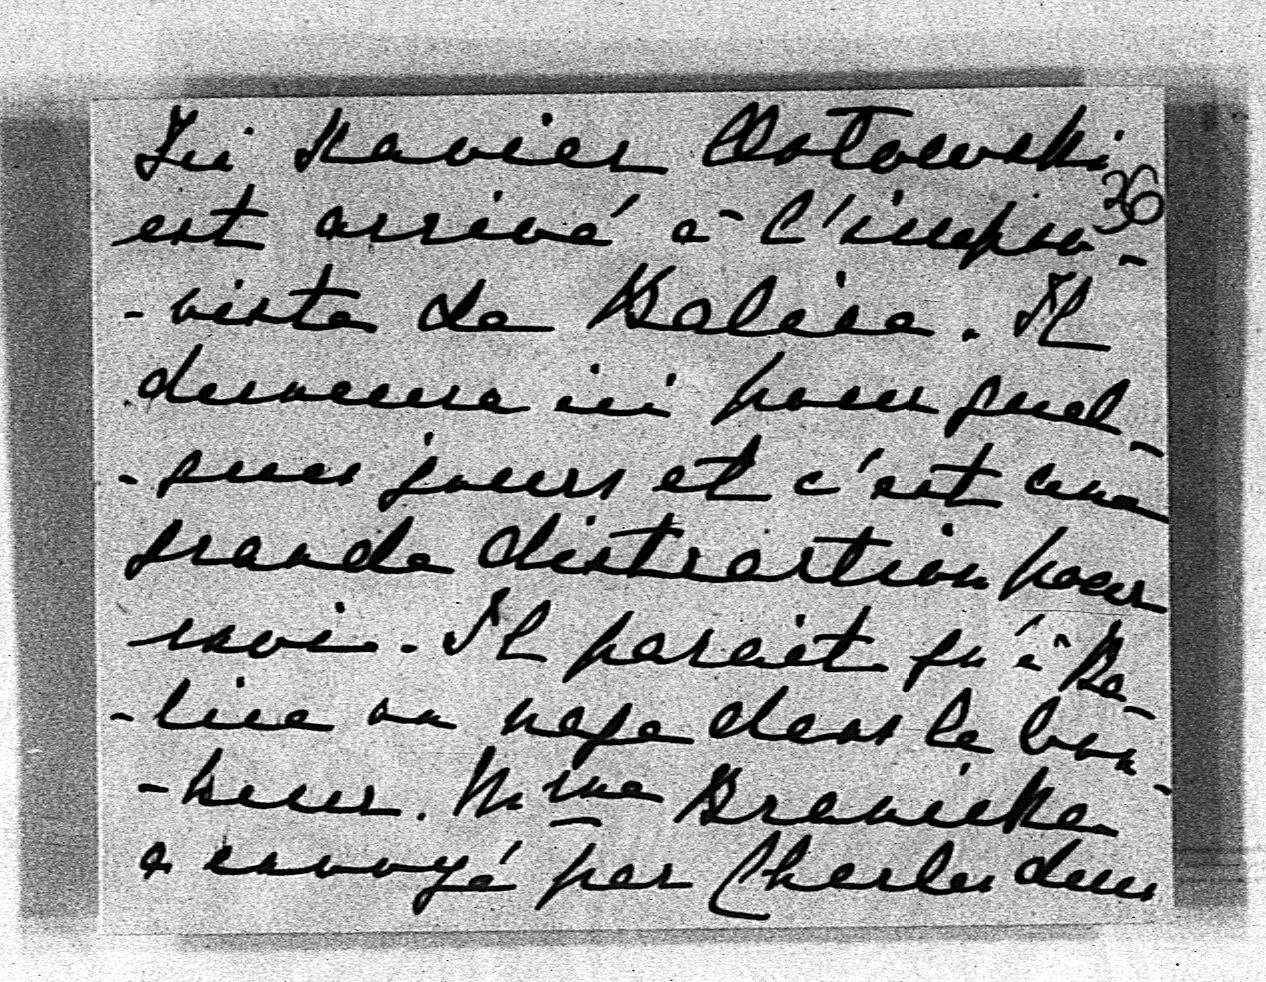 Ici Xavier Orłowski
36
est arrivé à l'impro-
-viste de Balice. Il
demeura ici pour quel-
-ques jours et c'est une
grande distraction pour
moi. Il parait qu'à Ba-
-lice on nage dans le bon-
-heur. Mme Branicka
a envoyé par Charles deux